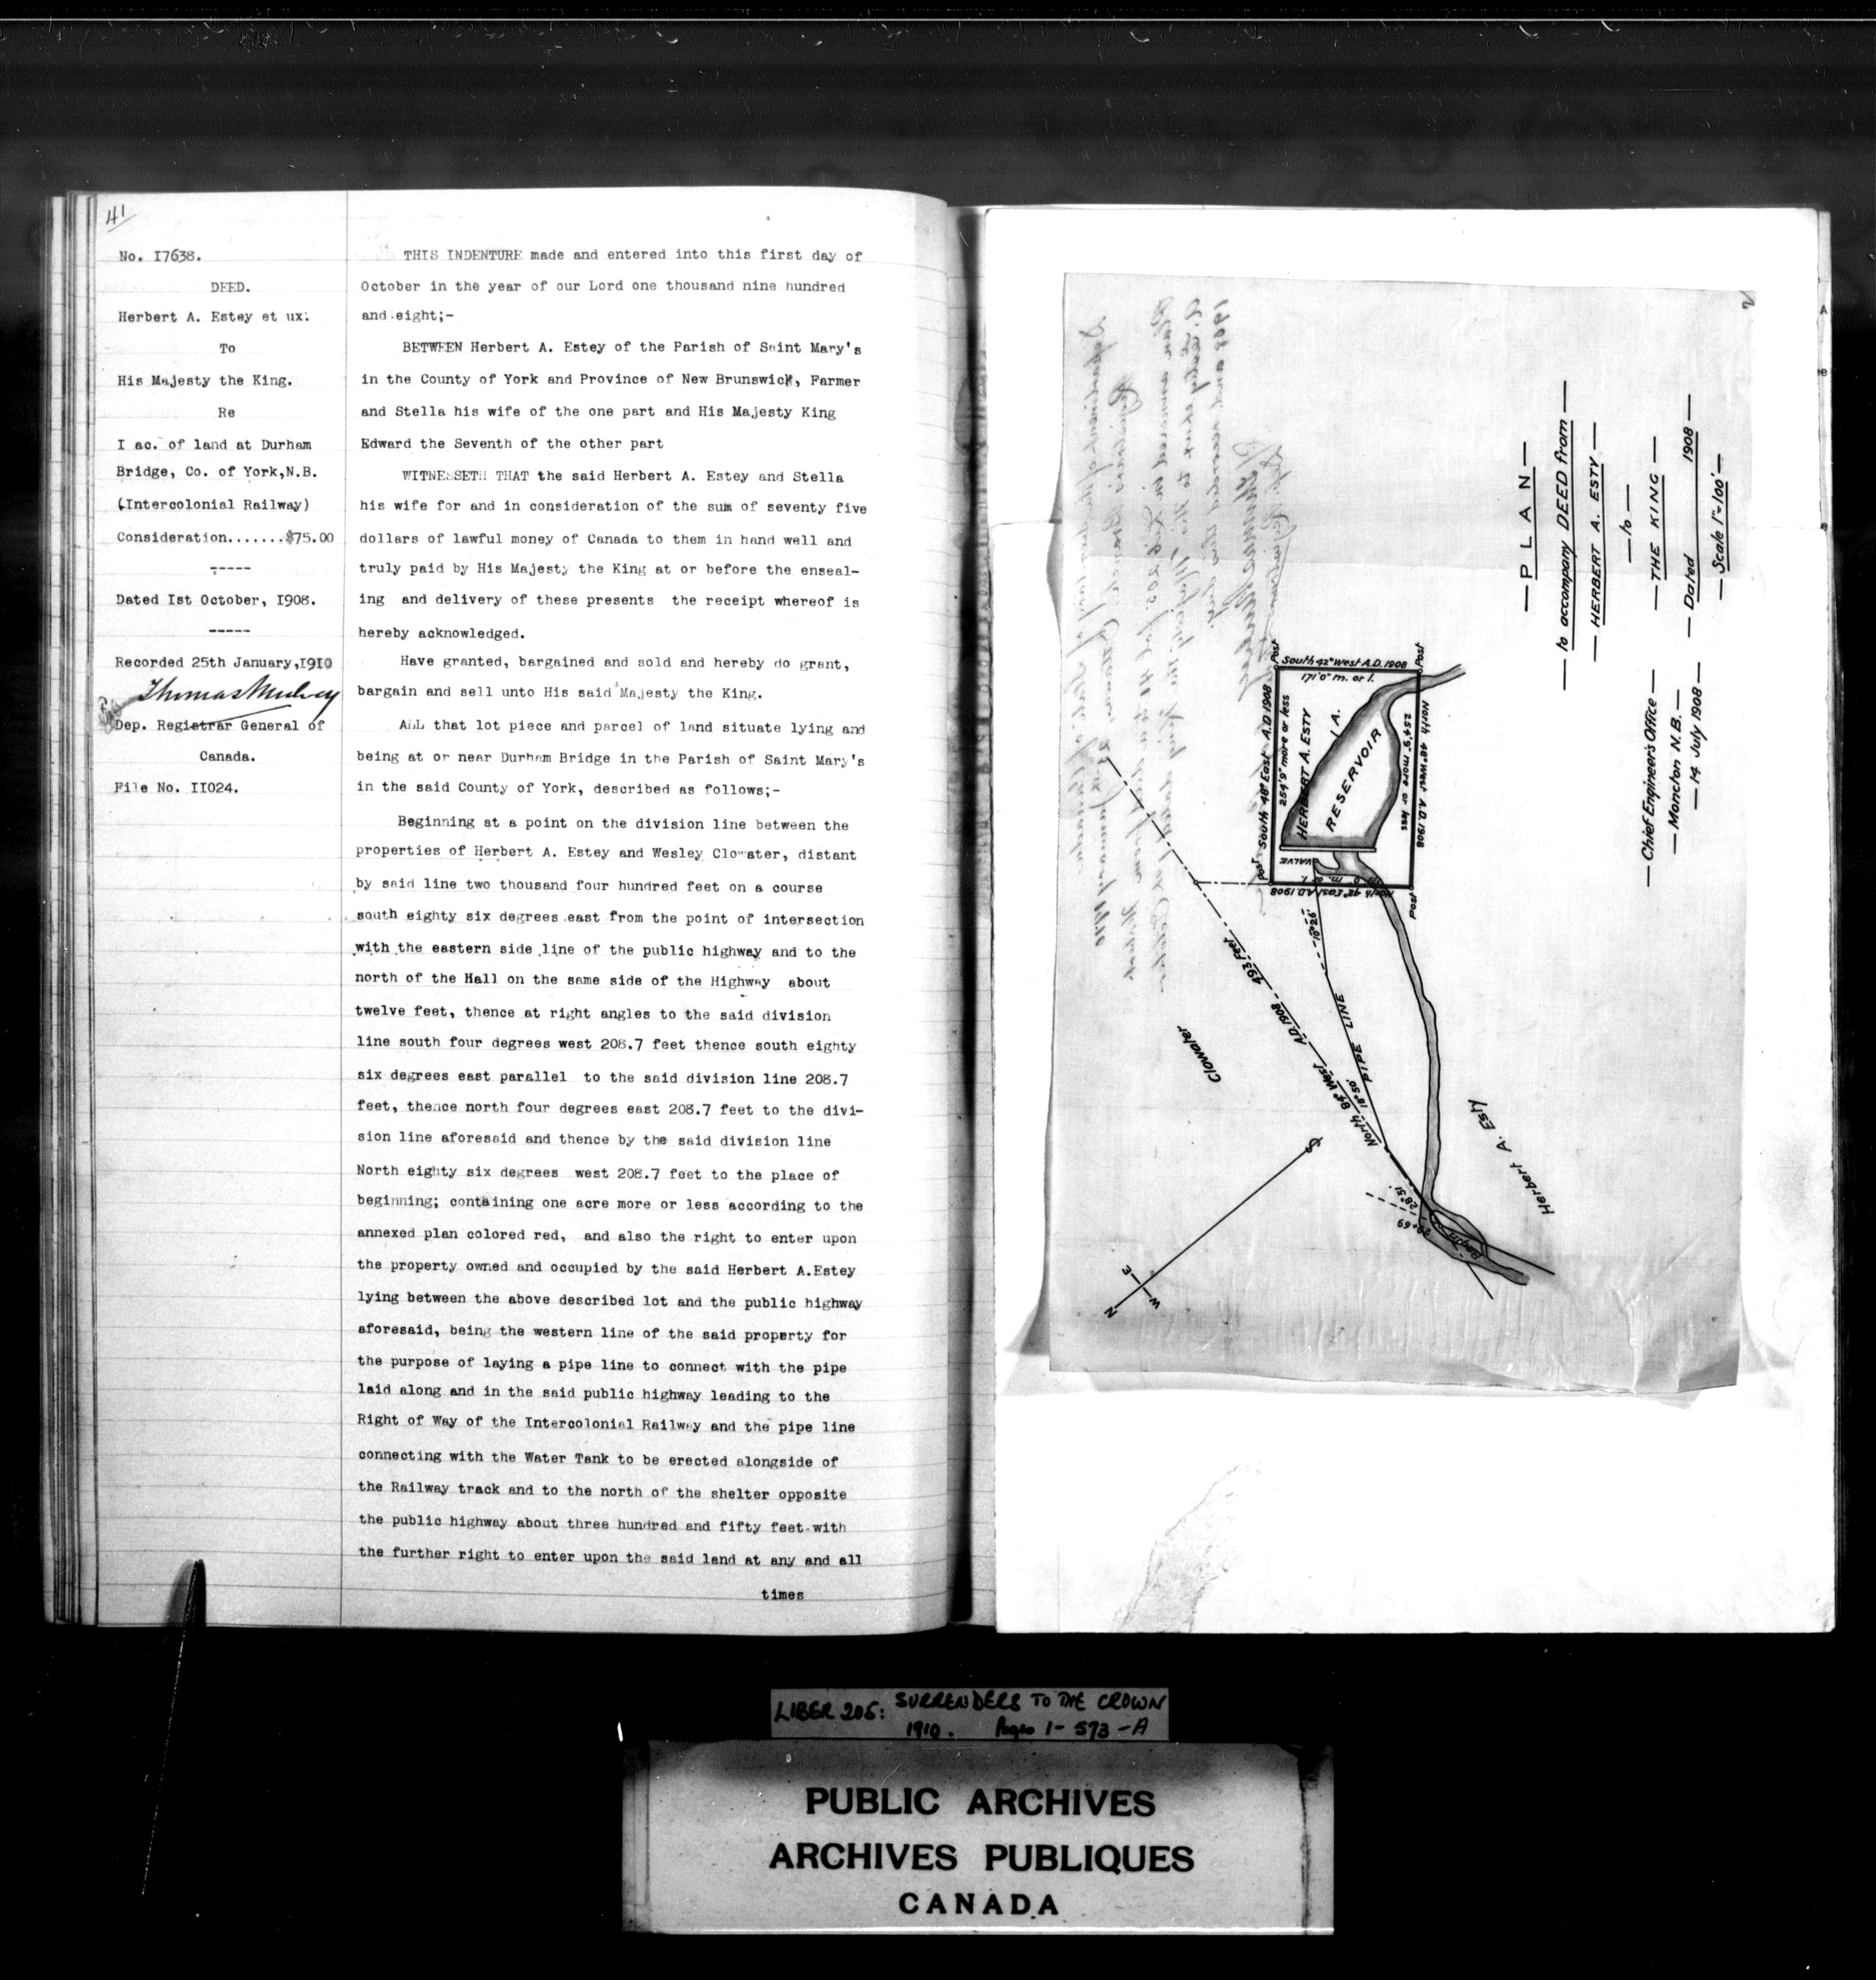 41
No. I7638.
DEED.
Herbert A. Estey et ux.
To
His Majesty the King.
Re
I ac. of land at Durham
Bridge, Co. of York,N.B.
(Intercolonial Railway)
Consideration.......$75.00
-----
Dated Ist October, I908.
-----
Recorded 25th January,I9I0
Thomas Mulvey
Dep. Registrar General of
Canada.
File No. II024.
THIS INDENTURE made and entered into this first day of
October in the year of our Lord one thousand nine hundred
and eight;-
BETWEEN Herbert A. Estey of the Parish of Saint Mary's
in the County of York and Province of New Brunswick, Farmer
and Stella his wife of the one part and His Majesty King
Edward the Seventh of the other part
WITNESSETH THAT the said Herbert A. Estey and Stella
his wife for and in consideration of the sum of seventy five
dollars of lawful money of Canada to them in hand well and
truly paid by His Majesty the King at or before the enseal-
ing and delivery of these presents the receipt whereof is
hereby acknowledged.
Have granted, bargained and sold and hereby do grant,
bargain and sell unto His said Majesty the King.
ALL that lot piece and parcel of land situate lying and
being at or near Durham Bridge in the Parish of Saint Mary's
in the said County of York, described as follows;-
Beginning at a point on the division line between the
properties of Herbert A. Estey and Wesley Clowater, distant
by said line two thousand four hundred feet on a course
south eighty six degrees east from the point of intersection
with the eastern side line of the public highway and to the
north of the Hall on the same side of the Highway about
twelve feet, thence at right angles to the said division
line south four degrees west 208.7 feet thence south eighty
six degrees east parallel to the said division line 208.7
feet, thence north four degrees east 208.7 feet to the divi-
sion line aforesaid and thence by the said division line
North eighty six degrees west 208.7 feet to the place of
beginning; containing one acre more or less according to the
annexed plan colored red, and also the right to enter upon
the property owned and occupied by the said Herbert A.Estey
lying between the above described lot and the public highway
aforesaid, being the western line of the said property for
the purpose of laying a pipe line to connect with the pipe
laid along and in the said public highway leading to the
Right of Way of the Intercolonial Railway and the pipe line
connecting with the Water Tank to be erected alongside of
the Railway track and to the north of the shelter opposite
the public highway about three hundred and fifty feet with
the further right to enter upon the said land at any and all
times
— PLAN —
— to accompany DEED from —
— HERBERT A. ESTY —
— to —
— THE KING —
— Dated 1908 —
— Scale 1"=100' —
— Chief Engineer's Office —
— Moncton N.B. —
— 14 July 1908 —
Post
South 42° West A.D. 1908
171'0" m. or l.
Post
South 48° East A.D 1908
254'9" more or less
HERBERT A. ESTY
1 A.
RESERVOIR
North 48° West A.D. 1908
254'9" more or less
VALVE
Post
North 42° East A.D. 1908
m. or l.
Post
10°26'
493 Feet
A.D. 1908
North 84° West
18°50'
PIPE LINE
Clowater
Herbert A. Esty
28°51'
29+69
Begin
S
E
W
N
LIBER 205: SURRENDERS TO THE CROWN
1910. Pages 1-573-A
PUBLIC ARCHIVES
ARCHIVES PUBLIQUES
CANADA